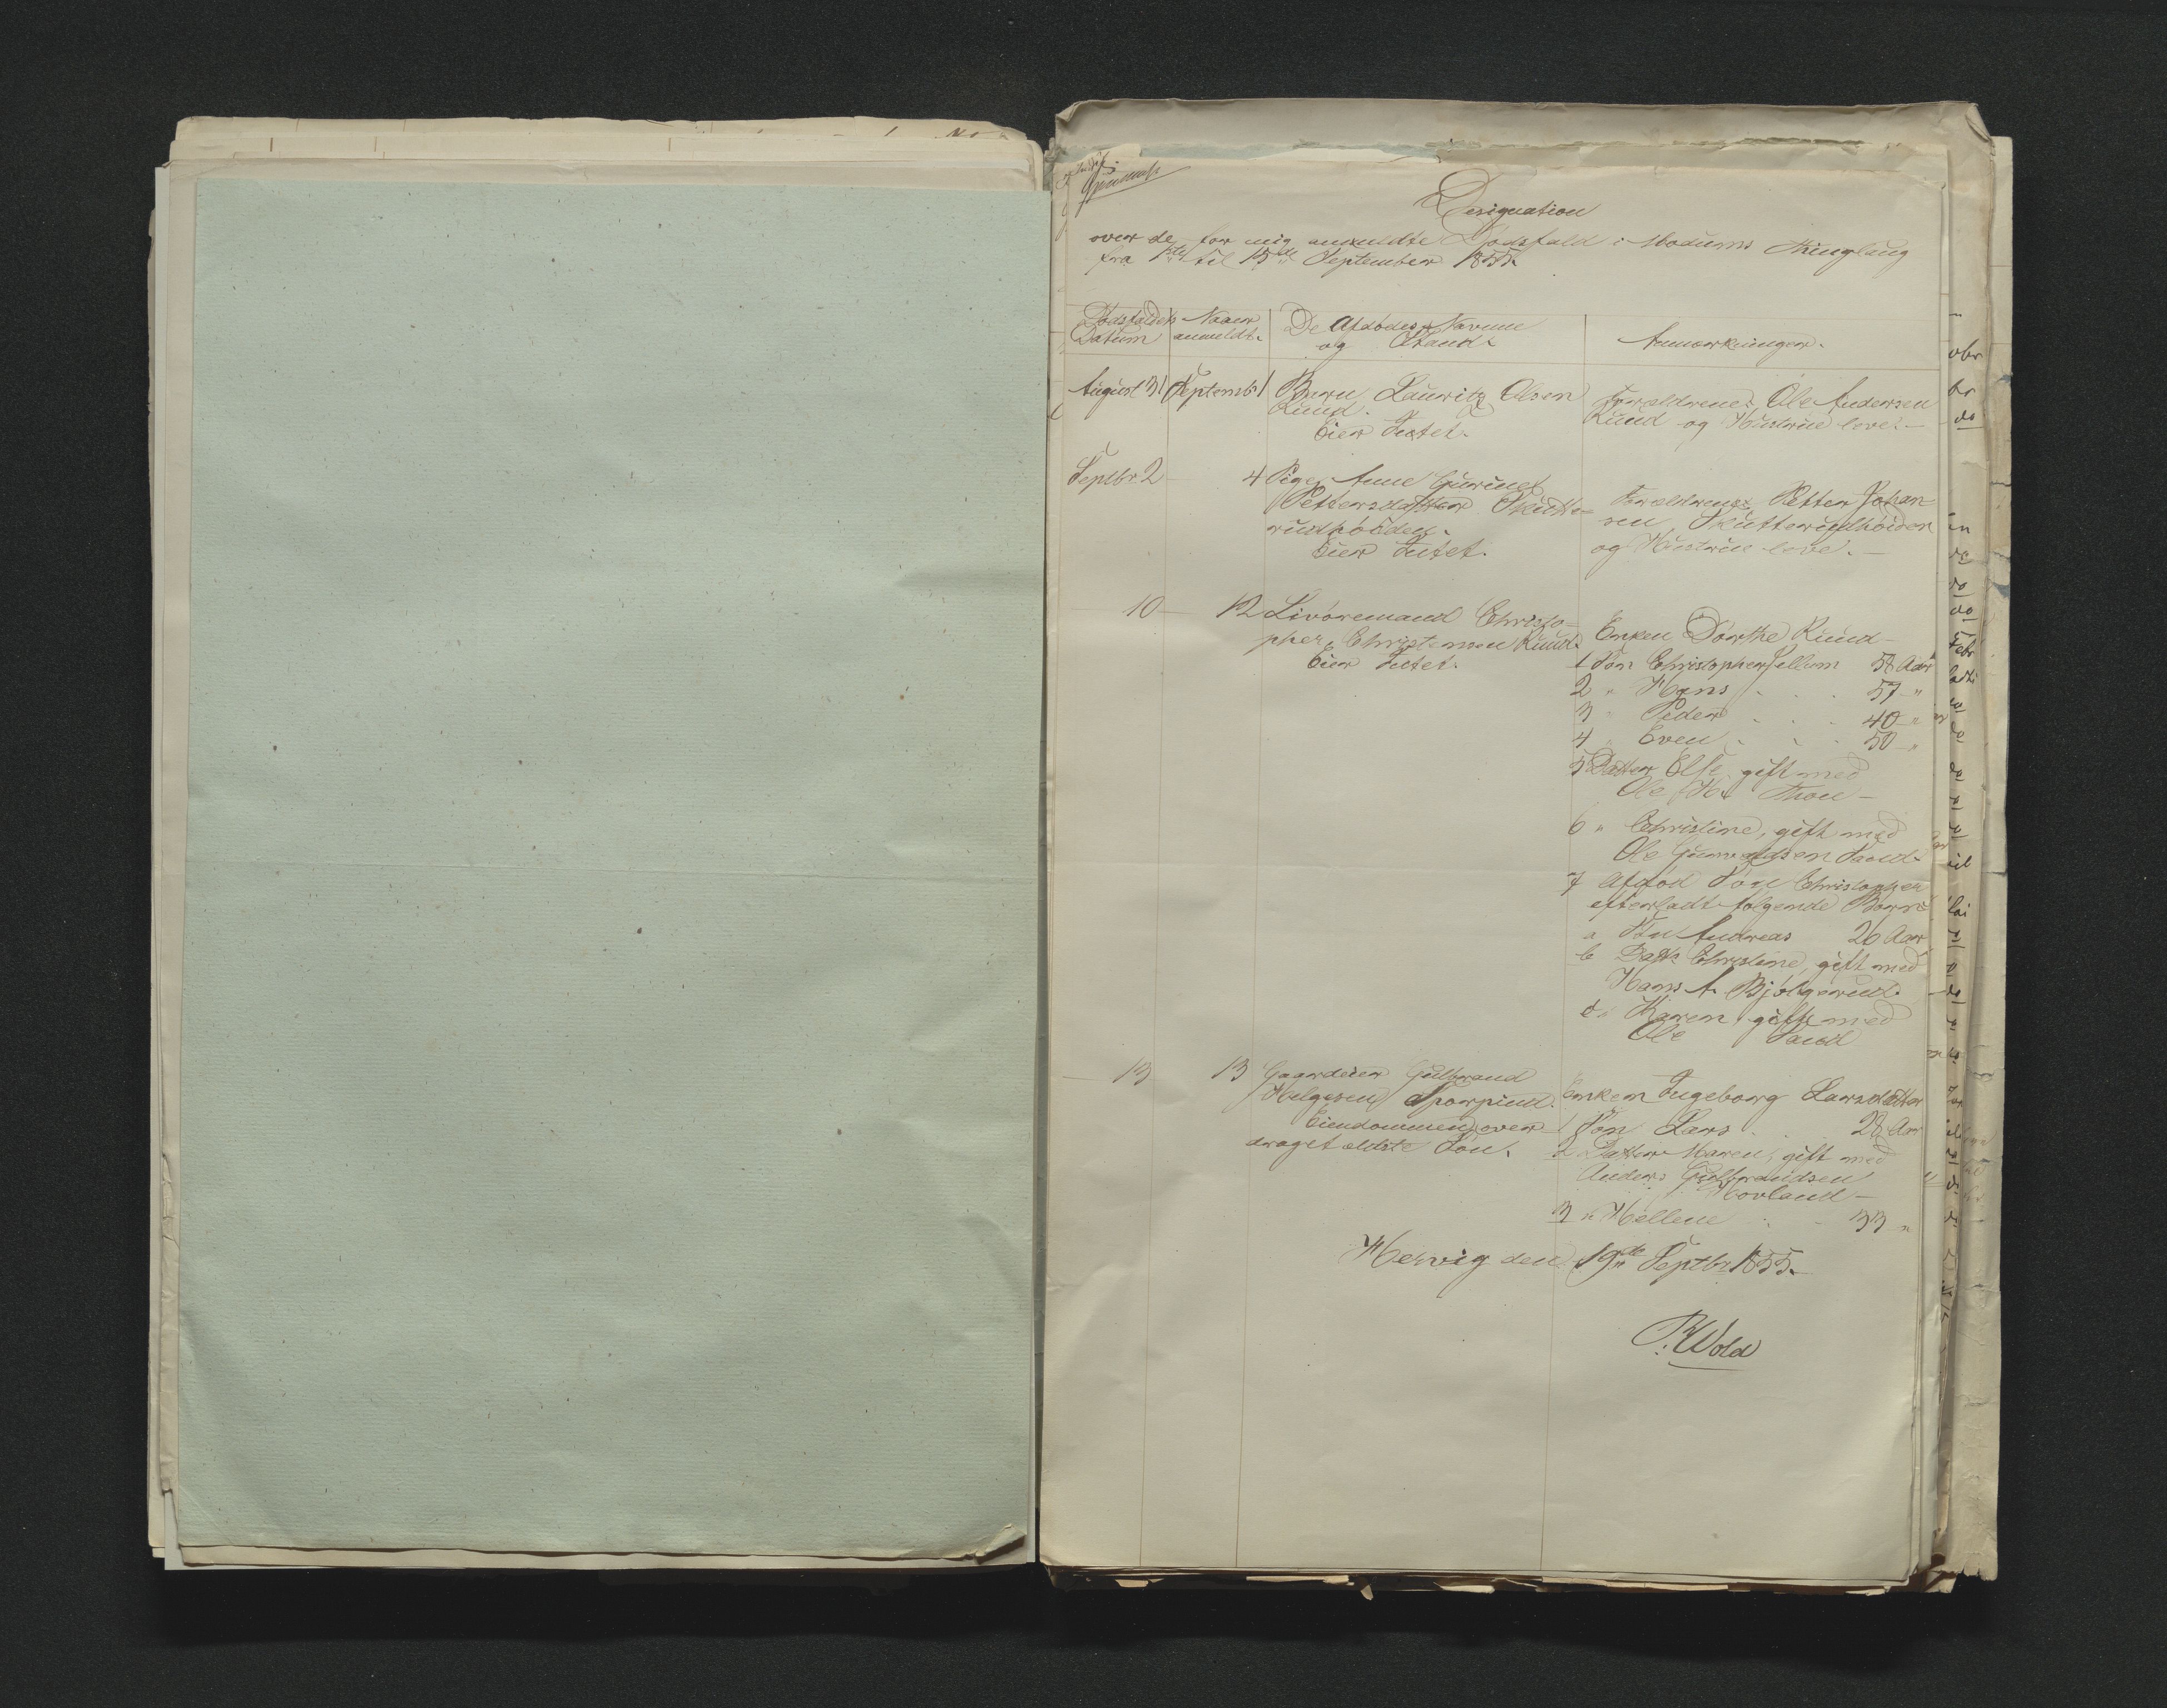 Designation
over de for mig anmeldte Dödsfald i Modums Thinglaug
fra 1ste til 15de September 1855.
Dödsfaldets Datum
Naar anmeldt.
De Afdödes Navne og Stand.
Anmærkninger.
August 31 Septembr 1 Barn Lauritz Olsen
Ruud.
Eier Intet.
Forældrene Ole Andersen
Ruud og Hustrue lever.—
Septbr. 2 4 Pige Anne Gurine
Pettersdatter Skutte-
rudhöiden.
Eier Intet.
Forældrene Petter Johan-
sen, Skutterudhöiden
og Hustrue lever.—
10 — 12 Livöremand Christo-
pher Christensen Ruud.
Eier Intet.
Enken Dorthe Ruud —
1 Sön Christopher Jellum 58 Aar
2 " Hans . . . 57 "
3 Peder . . . 40 "
4 " Even . . . 50 "
5 Datter Else gift med
Ole H. Thon —
6 " Christine, gift med
Ole Gunersen Sand.
7 Afdöd Sön Christopher
efterladt fölgende Börn
a Sön Andreas 26 Aar
b Datt. Christine, gift med
Hans A. Bjölgerud.
c " Karen, gift med
Ole Sand
— 13 13 Gaardeier Gulbrand
Helgesen Sporpind.
Eiendommen over-
draget ældste Sön.
Enken Ingeborg Larsdatter
1 Sön Lars . . 28 Aar
2 Datter Maren, gift med
Anders Gulbrandsen
Hovland —
3 " Hellene . . 33 "
Hervig den 19de Septbr 1855.
P. Wold